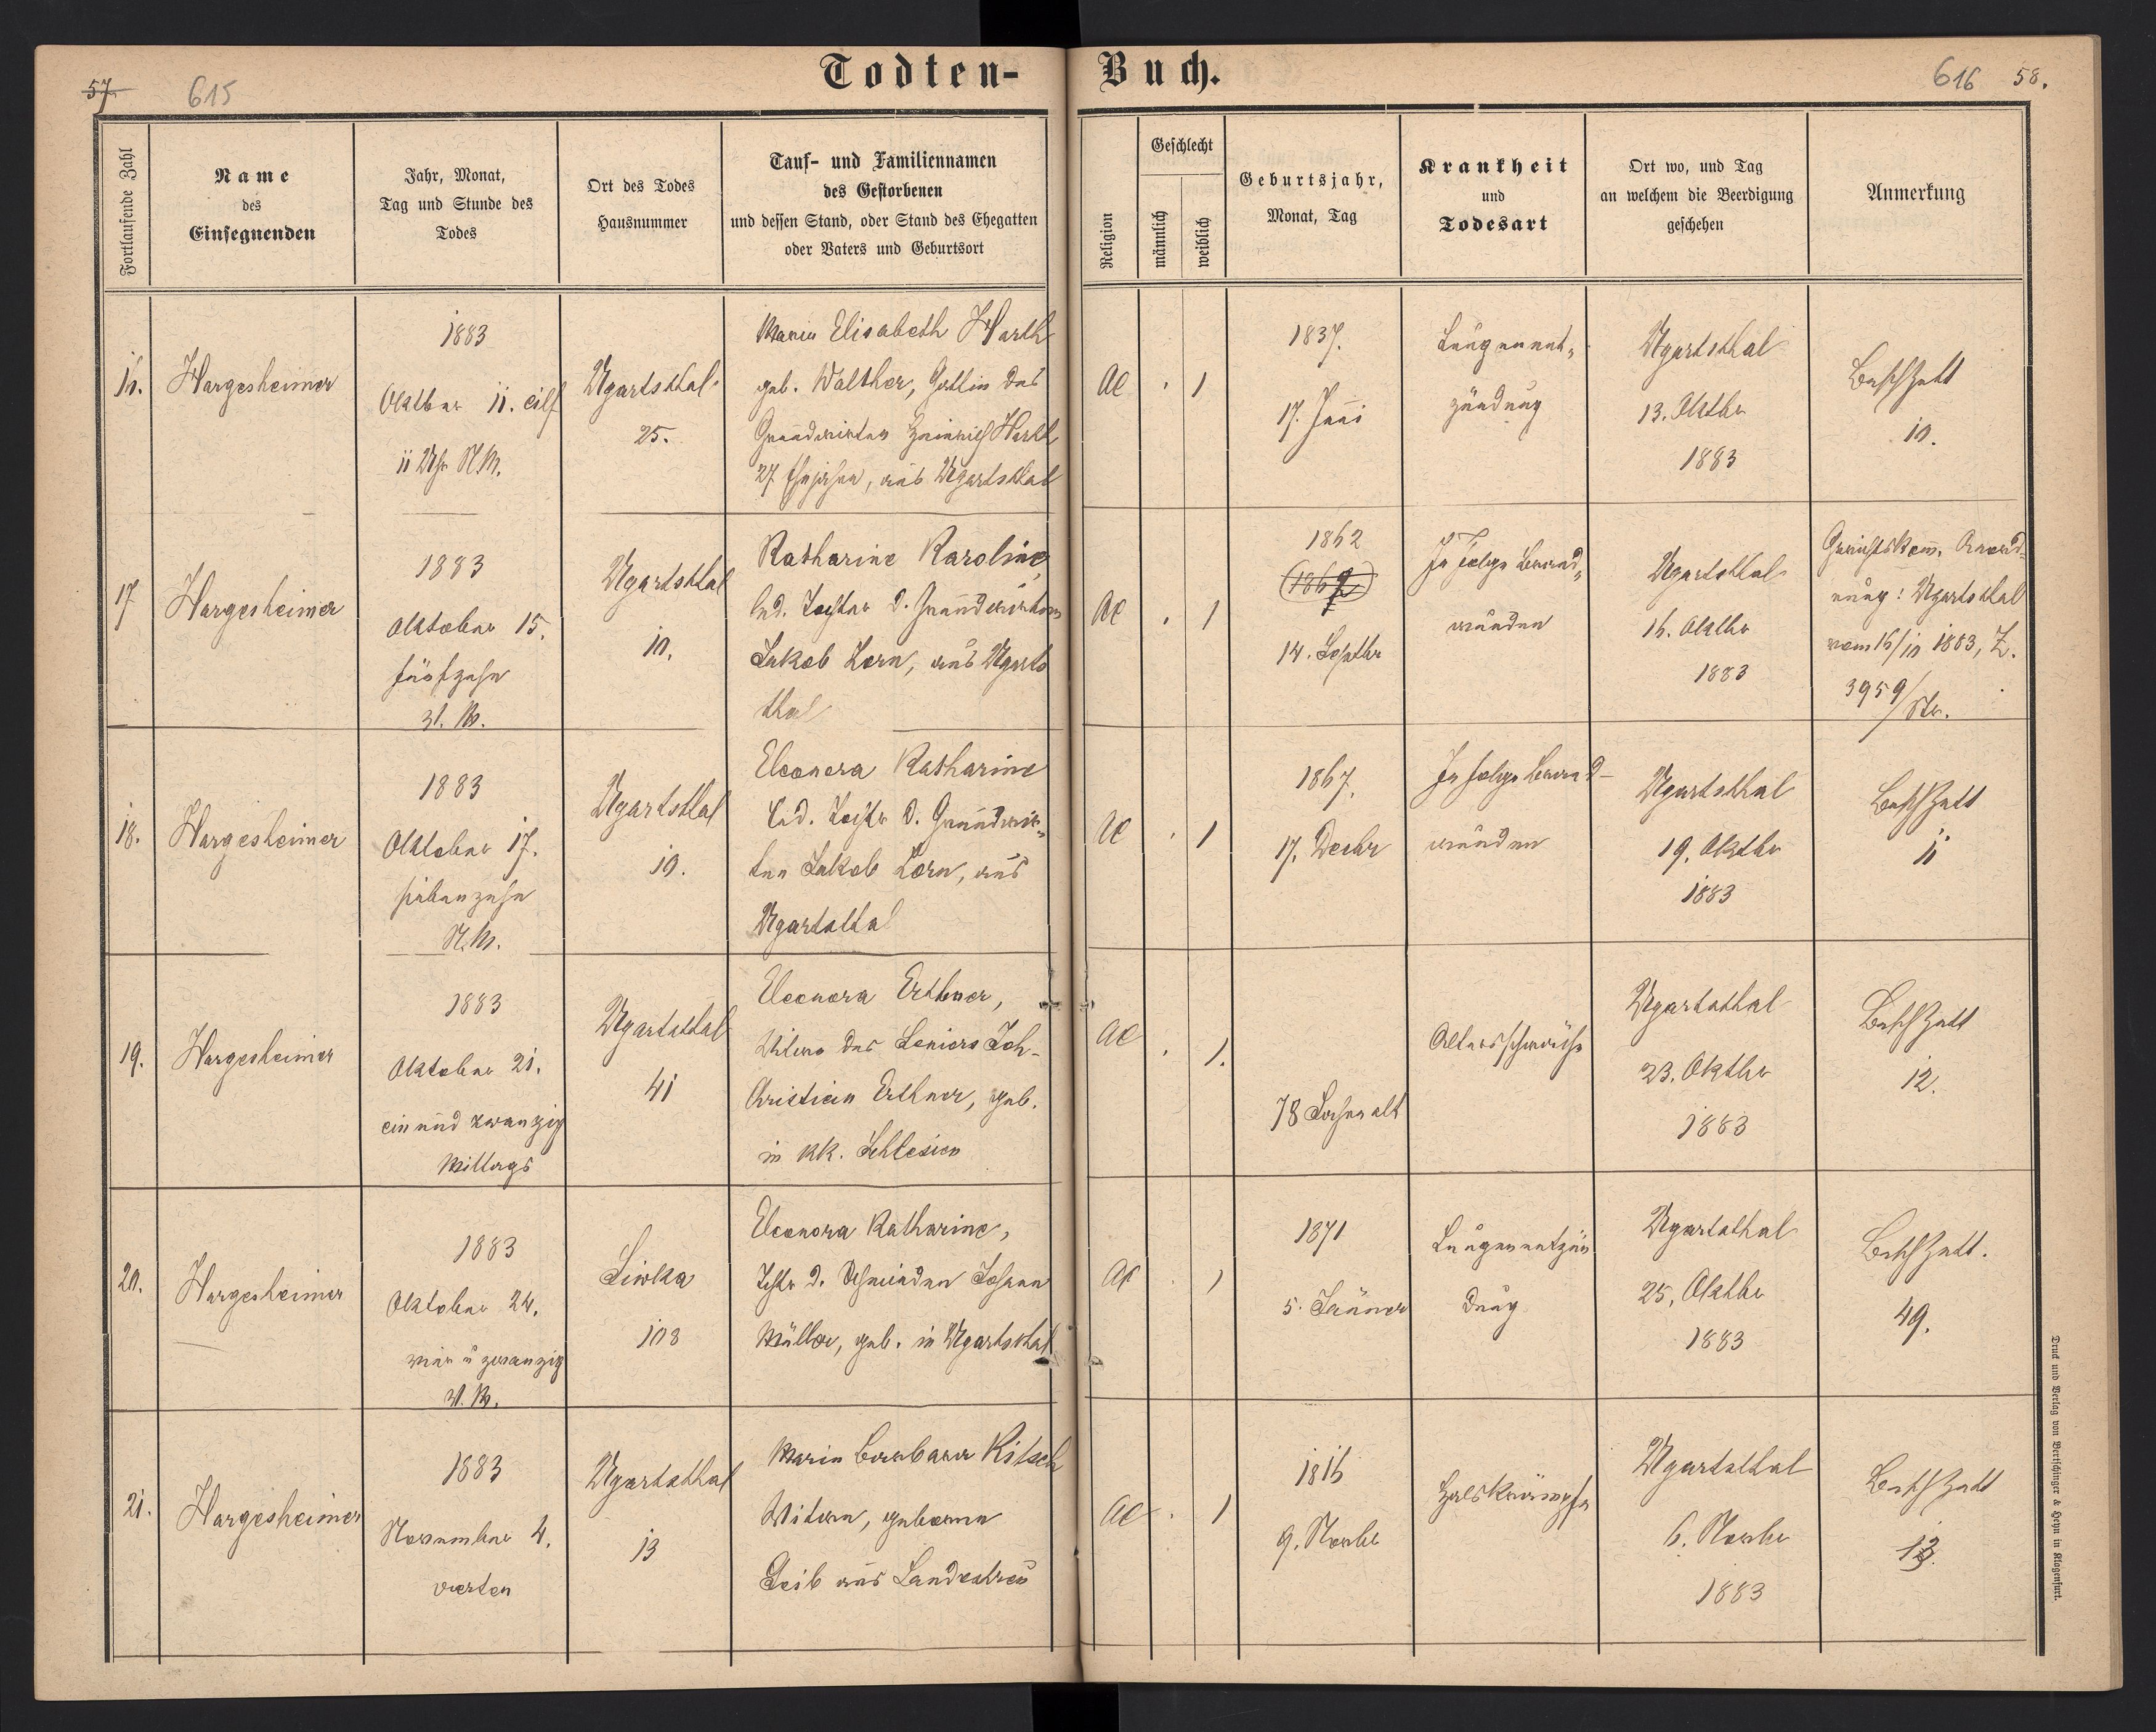 57.
615
Todten-
Buch.
616
58.
Fortlaufende Zahl
Name
des
Einsegnenden
Jahr, Monat,
Tag und Stunde des
Todes
Ort des Todes
Hausnummer
Tauf- und Familiennamen
des Gestorbenen
und dessen Stand, oder Stand des Ehegatten
oder Vaters und Geburtsort
Religion
Geschlecht
männlich
weiblich
Geburtsjahr,
Monat, Tag
Krankheit
und
Todesart
Ort wo, und Tag
an welchem die Beerdigung
geschehen
Anmerkung
16.
Hargesheimer
1883
Oktber 11. eilf
11 Uhr N.M.
Ugartsthal
25.
Maria Elisabeth Harth
geb. Walther, Gattin des
Grundwirten Heinrich Harth
27 Ehejahre, aus Ugartsthal
AC
.
1
1837.
17. Juni
Lungenent-
zündung
Ugartsthal
13. Oktbr
1883
BeschZett
10.
17
Hargesheimer
1883
Oktober 15.
fünfzehn
V. M.
Ugartsthal
10.
Katharine Karoline,
led. Tochter d. Grundwirten
Jakob Zorn, aus Ugarts
thal
AC
.
1
1862
14. Septbr
In folge Brand-
wunden
Ugartsthal
16. Oktbr
1883
Gerichtskom. Anord-
nung: Ugartsthal
vom 16/10 1883, Z.
3959/Str.
18.
Hargesheimer
1883
Oktober 17.
siebenzehn
N. M.
Ugartsthal
10.
Eleonora Katharine
led. Tochtr d. Grundwir-
ten Jakob Zorn, aus
Ugartsthal
AC
.
1
1867.
17. Decbr
In folge Brand-
wunden
Ugartsthal
19. Oktbr
1883
BeschZett
11
19.
Hargesheimer
1883
Oktober 21.
ein und zwanzig
Mittags
Ugartsthal
41
Eleonora Erthner,
Witwe des Seniors Joh-
Christian Erthner, geb.
in kk. Schlesien
AC
.
1.
78 Jahre alt
Altersschwäche
Ugartsthal
23. Oktbr
1883
BeschZett
12.
20.
Hargesheimer
1883
Oktober 24.
vier u zwanzig
V. M.
Siwka
108
Eleonora Katharine,
Tchtr d. Schmieden Johann
Müller, geb. in Ugartsthal
AC
.
1
1871
5. Jänner
Lungenentzün
dung
Ugartsthal
25. Oktbr
1883
BeschZett.
49.
21.
Hargesheimer
1883
November 4.
vierten
Ugartsthal
13
Maria Barbara Kitsch
Witwe, geborene
Geib aus Landestreu
AC
.
1
1816
9. Novbr
Halskrämpfe
Ugartsthal
6. Novbr
1883
BeschZett
13.
Druck und Verlag von Bertschinger & Heyn in Klagenfurt.